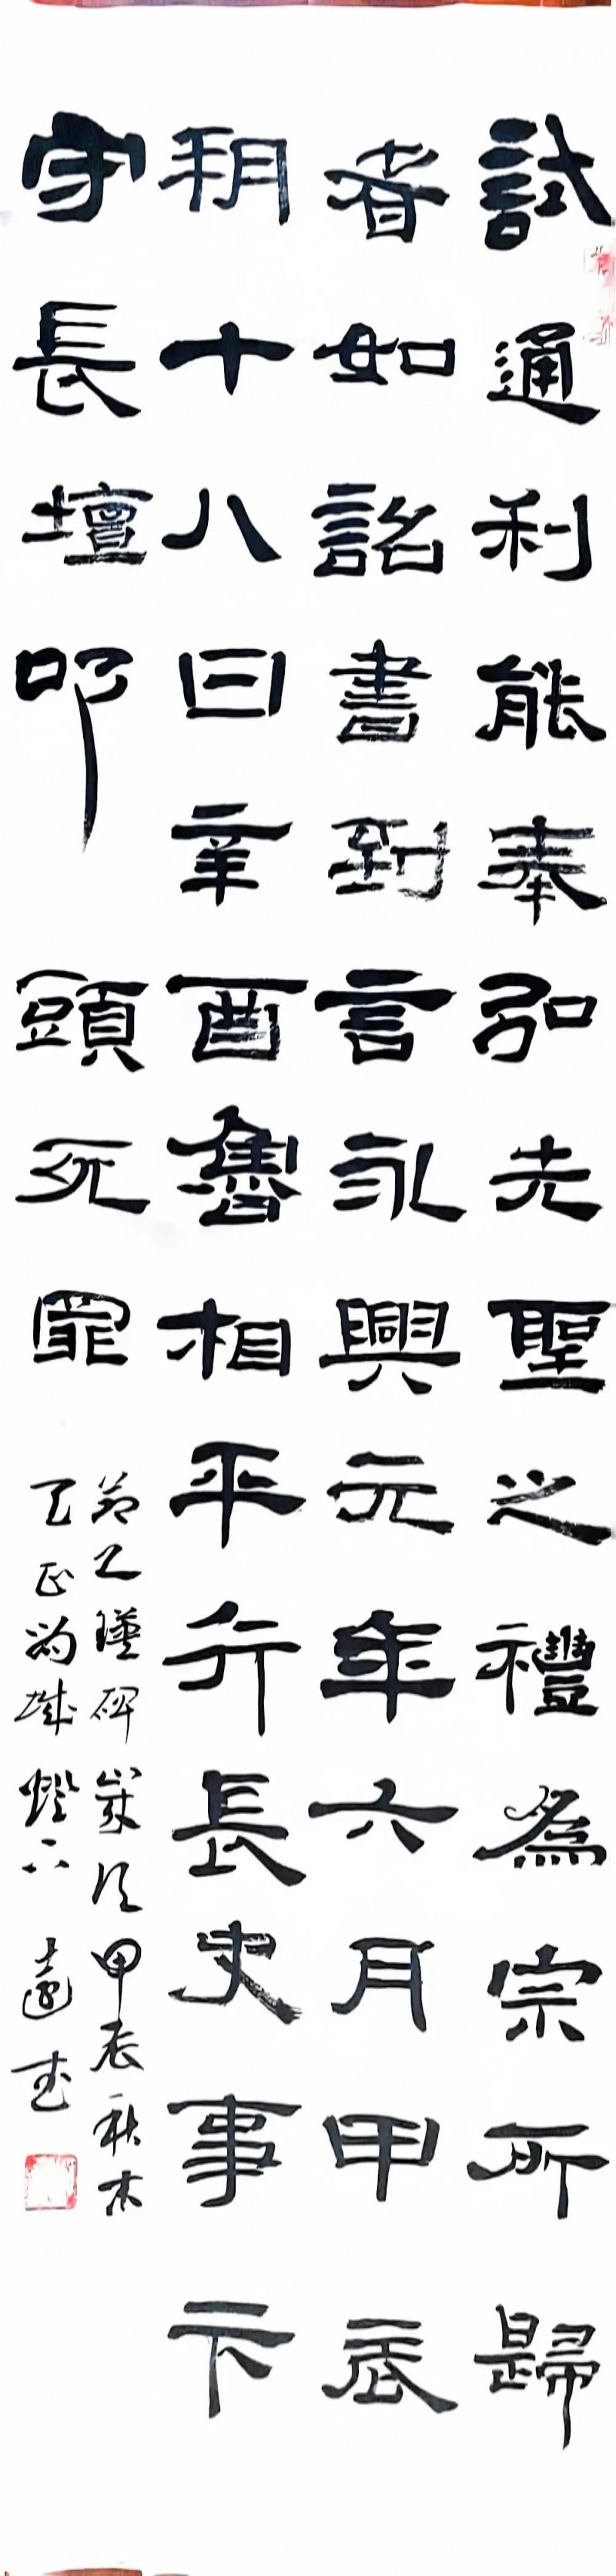 試通利能奉弘先聖之禮為宗所歸
者如詔書到言永興元年六月甲辰
朔十八日辛酉魯相平行長史事卞
守長壇叩頭死罪
節乙瑛碑歲次甲辰秋末
於城燈下遠武